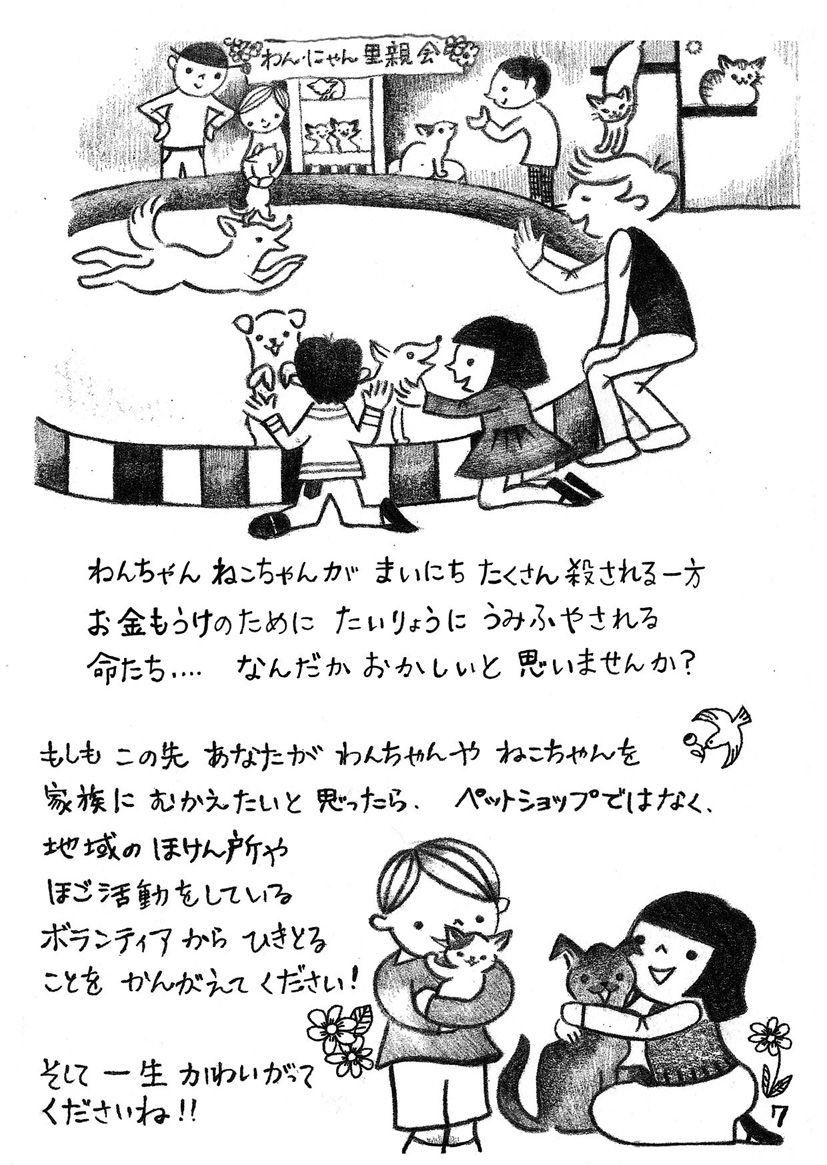 わん・にゃん里親会
わんちゃん ねこちゃんが まいにち たくさん 殺される一方
お金もうけのために たいりょうに うみふやされる
命たち.... なんだか おかしいと 思いませんか?
もしも この先 あなたが わんちゃんや ねこちゃんを
家族に むかえたいと 思ったら、 ペットショップではなく、
地域の ほけん所や
ほご活動をしている
ボランティア から ひきとる
ことを かんがえて ください!
そして 一生 かわいがって
くださいね!!
7